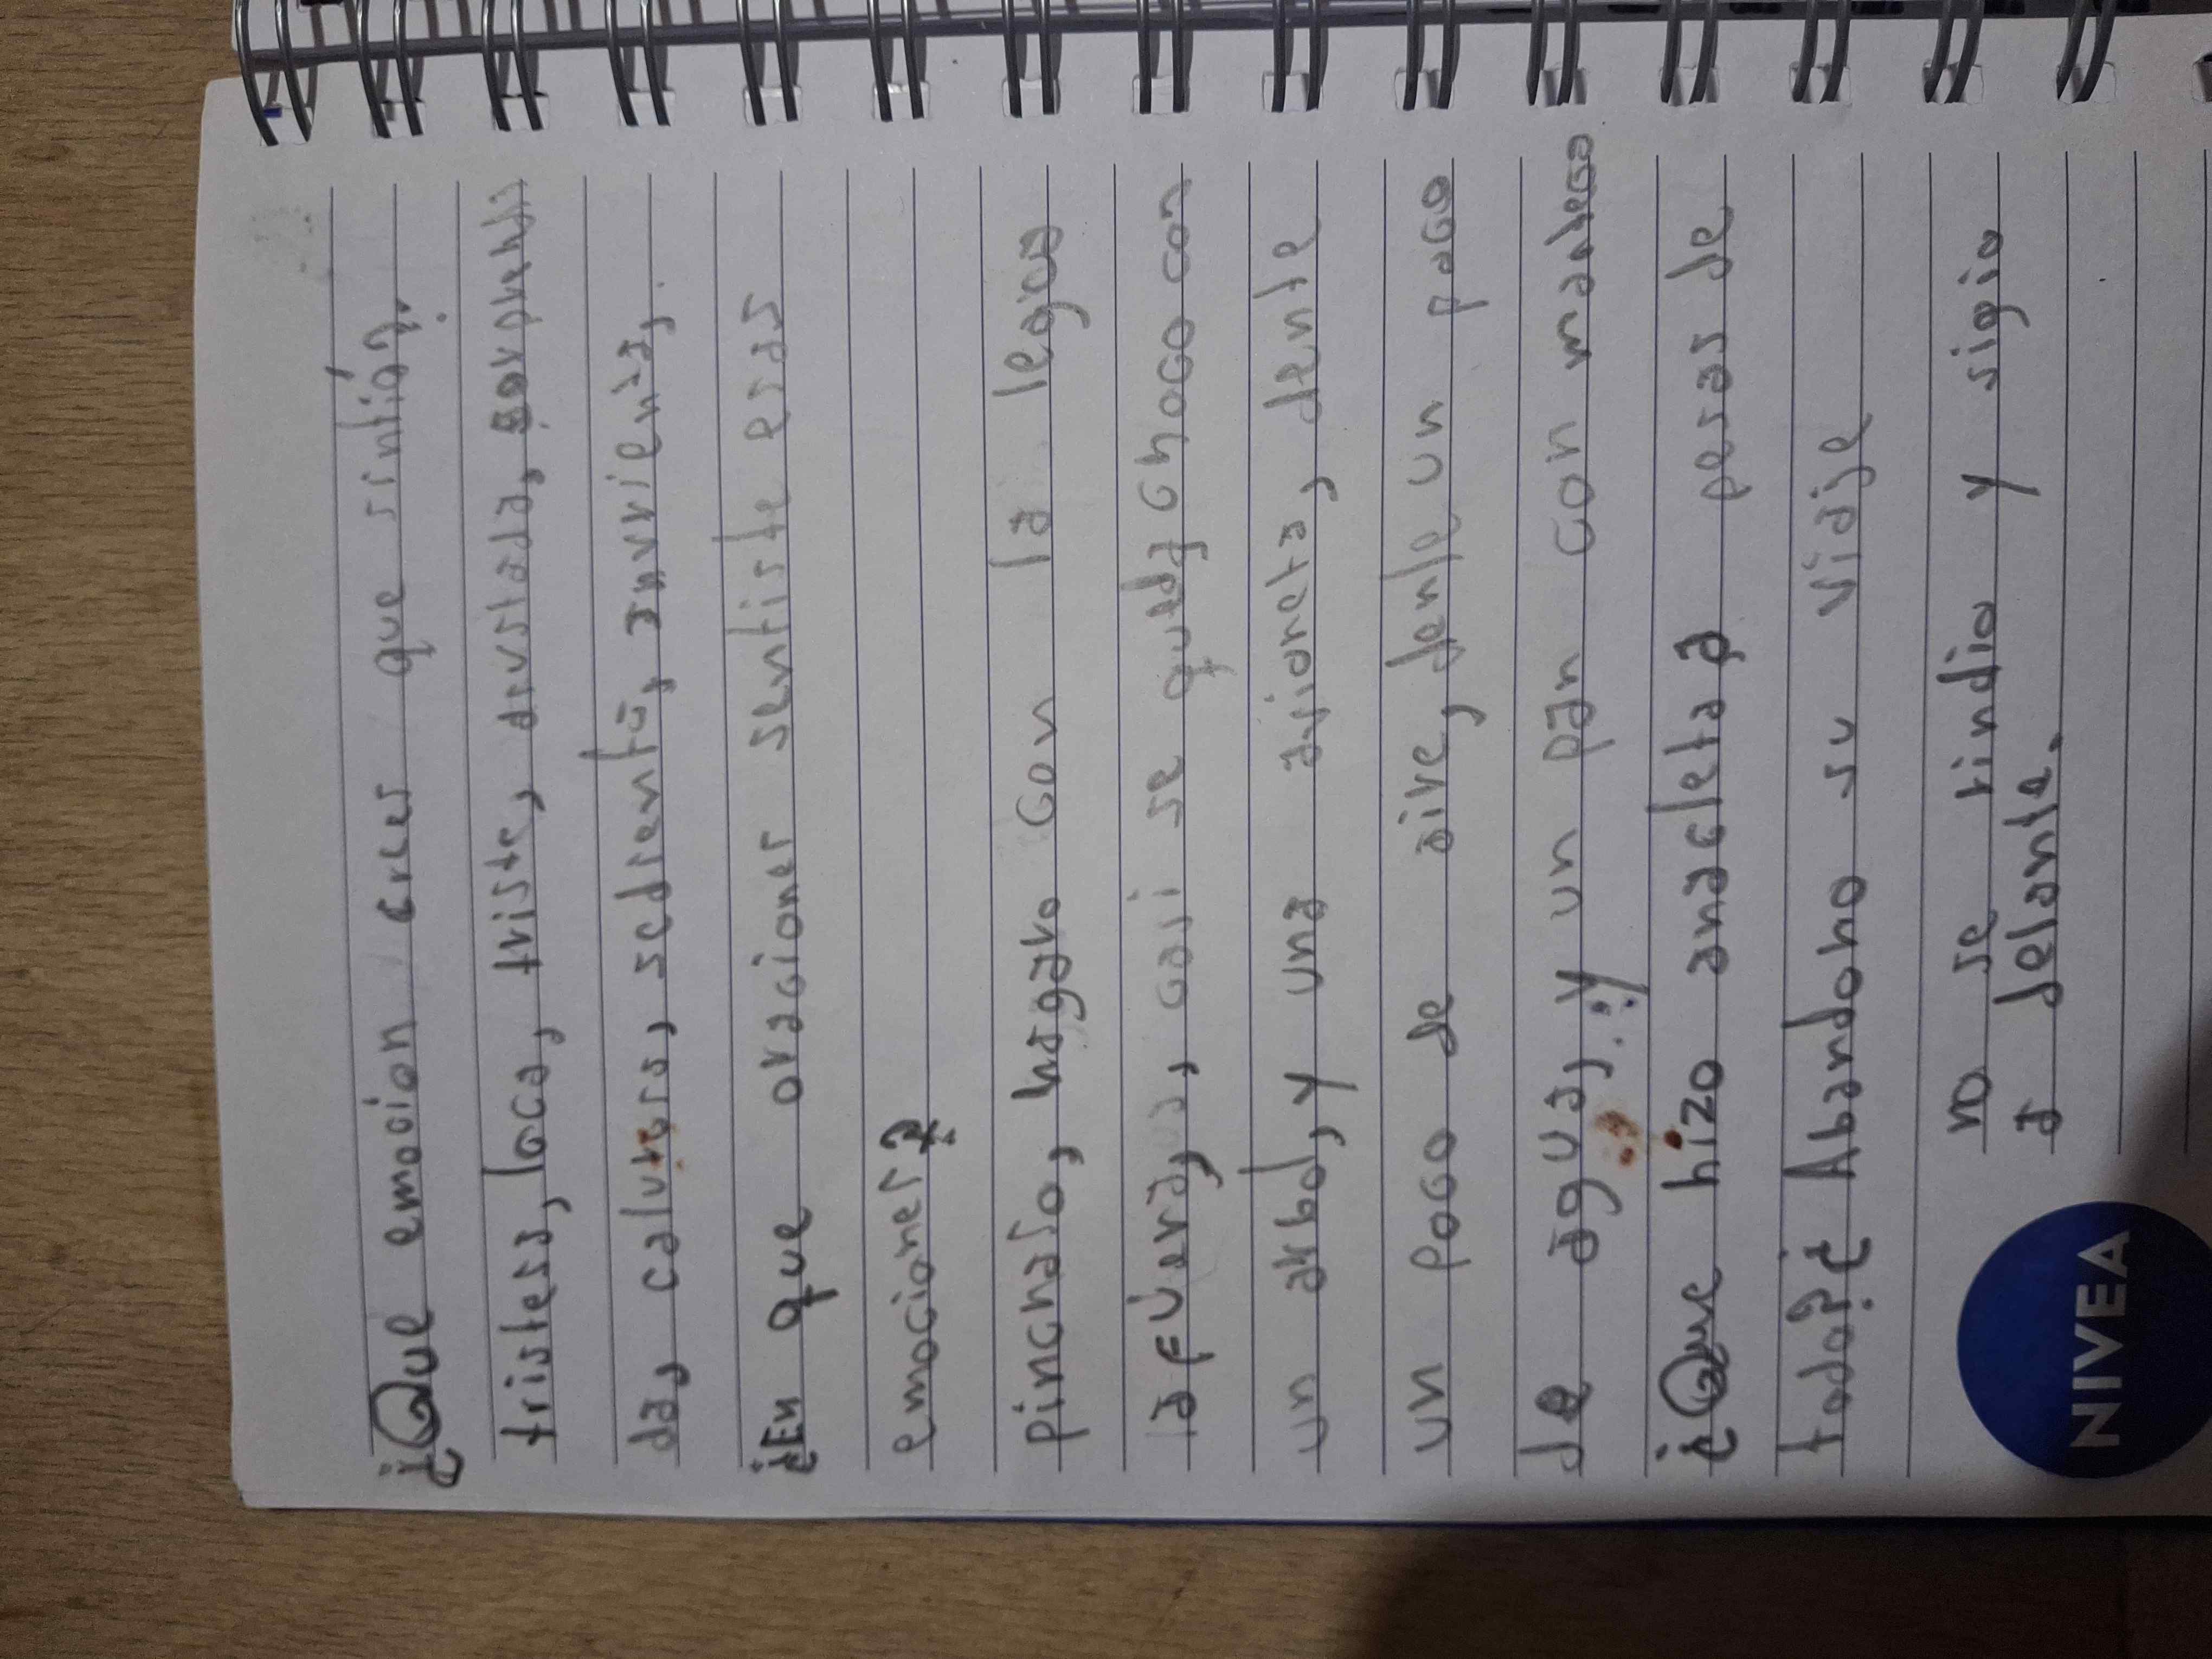 ¿Que emocion crees que sintió?
tristess, loca, triste, asustada, sorprendi
da, caluross, sedienta,
¿En que oraciones sentiste esas
emociones?
pinchaso, hogaro con la legua
la fuera, casi se choco con
un arbol, y una avioneta, denle
un poco de aire, denle un poco
de agua, y un pan con
¿Que hizo anacleta a pesar de
todo? ¿Abandono su viaje
no se rindio y sigio
a delante.
NIVEA